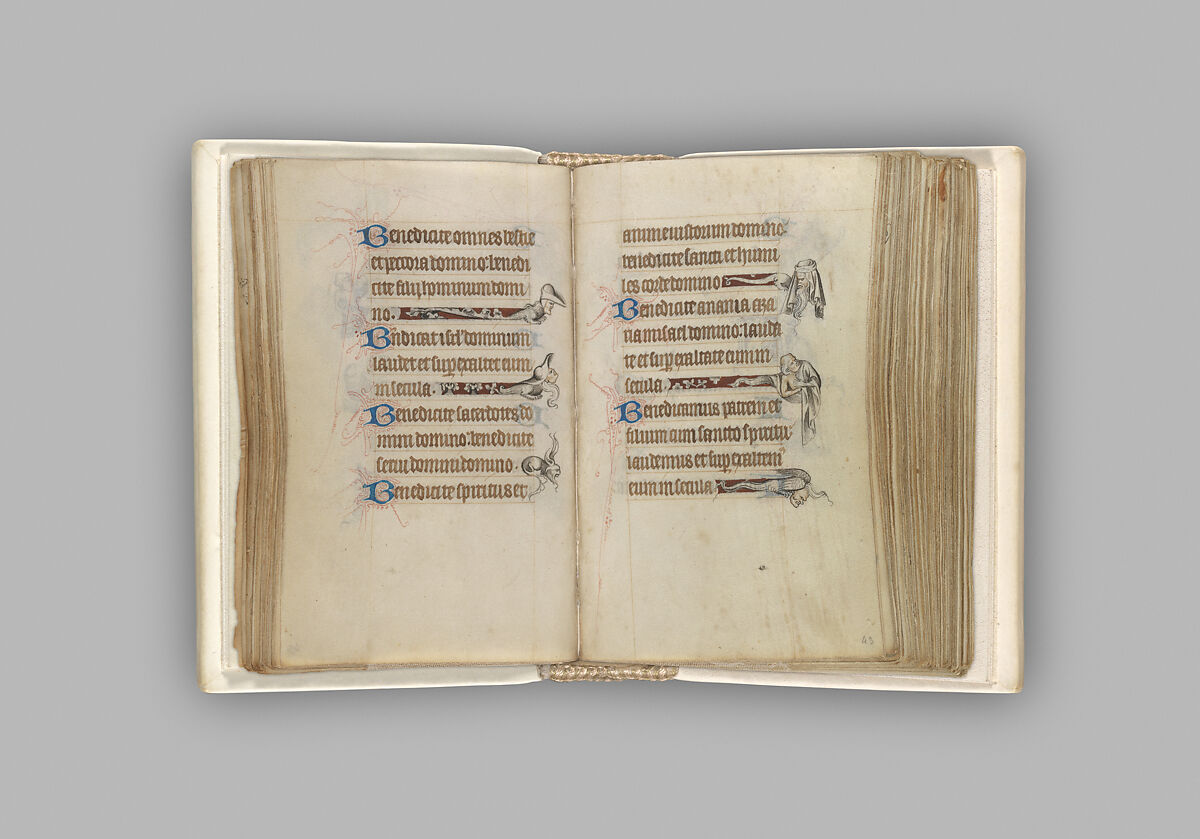 Benedicite omnes bestie
et peccora domino: benedi
cite filij hominum domi
no.
Bndicat isrl dominum
laudet et sup exaltet eum
in secula.
Benedicite sacerdotes do
mini domino: benedicite
servi domini domino.
Benedicite spiritus et
anime iustorum domino:
benedicite sancti et humi
les corde domino
Benedicite anania aza
ria misael domino: lauda
te et sup exaltate eum in
secula.
Benedicamus patrem et
filium cum sancto spiritu
laudemus et sup exaltem
eum in secula
43